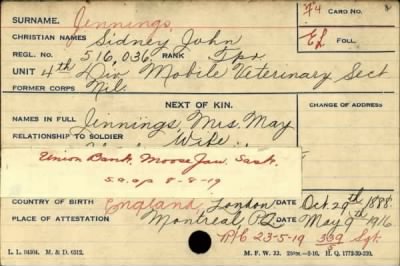 SURNAME. Jennings. 74 CARD NO. 2
CHRISTIAN NAMES Sidney John EL FOLL.
REGL. NO. 516,036. RANK Tpr.
UNIT 4th Div Mobile Veterinary Sect
FORMER CORPS Nil.
NEXT OF KIN. CHANGE OF ADDRESS
NAMES IN FULL Jennings, Mrs. May
RELATIONSHIP TO SOLDIER Wife
Union Bank, Moose Jaw, Sask.
s.a.o.p 8-8-19
COUNTRY OF BIRTH England, London DATE Oct. 29th 1888.
PLACE OF ATTESTATION Montreal P.Q. DATE May 9th 1916
R/C 23-5-19 339 Sgt.
L. L. 94504. M. & D. 6512. M. F. W. 22. H. Q. 1772-39-339.